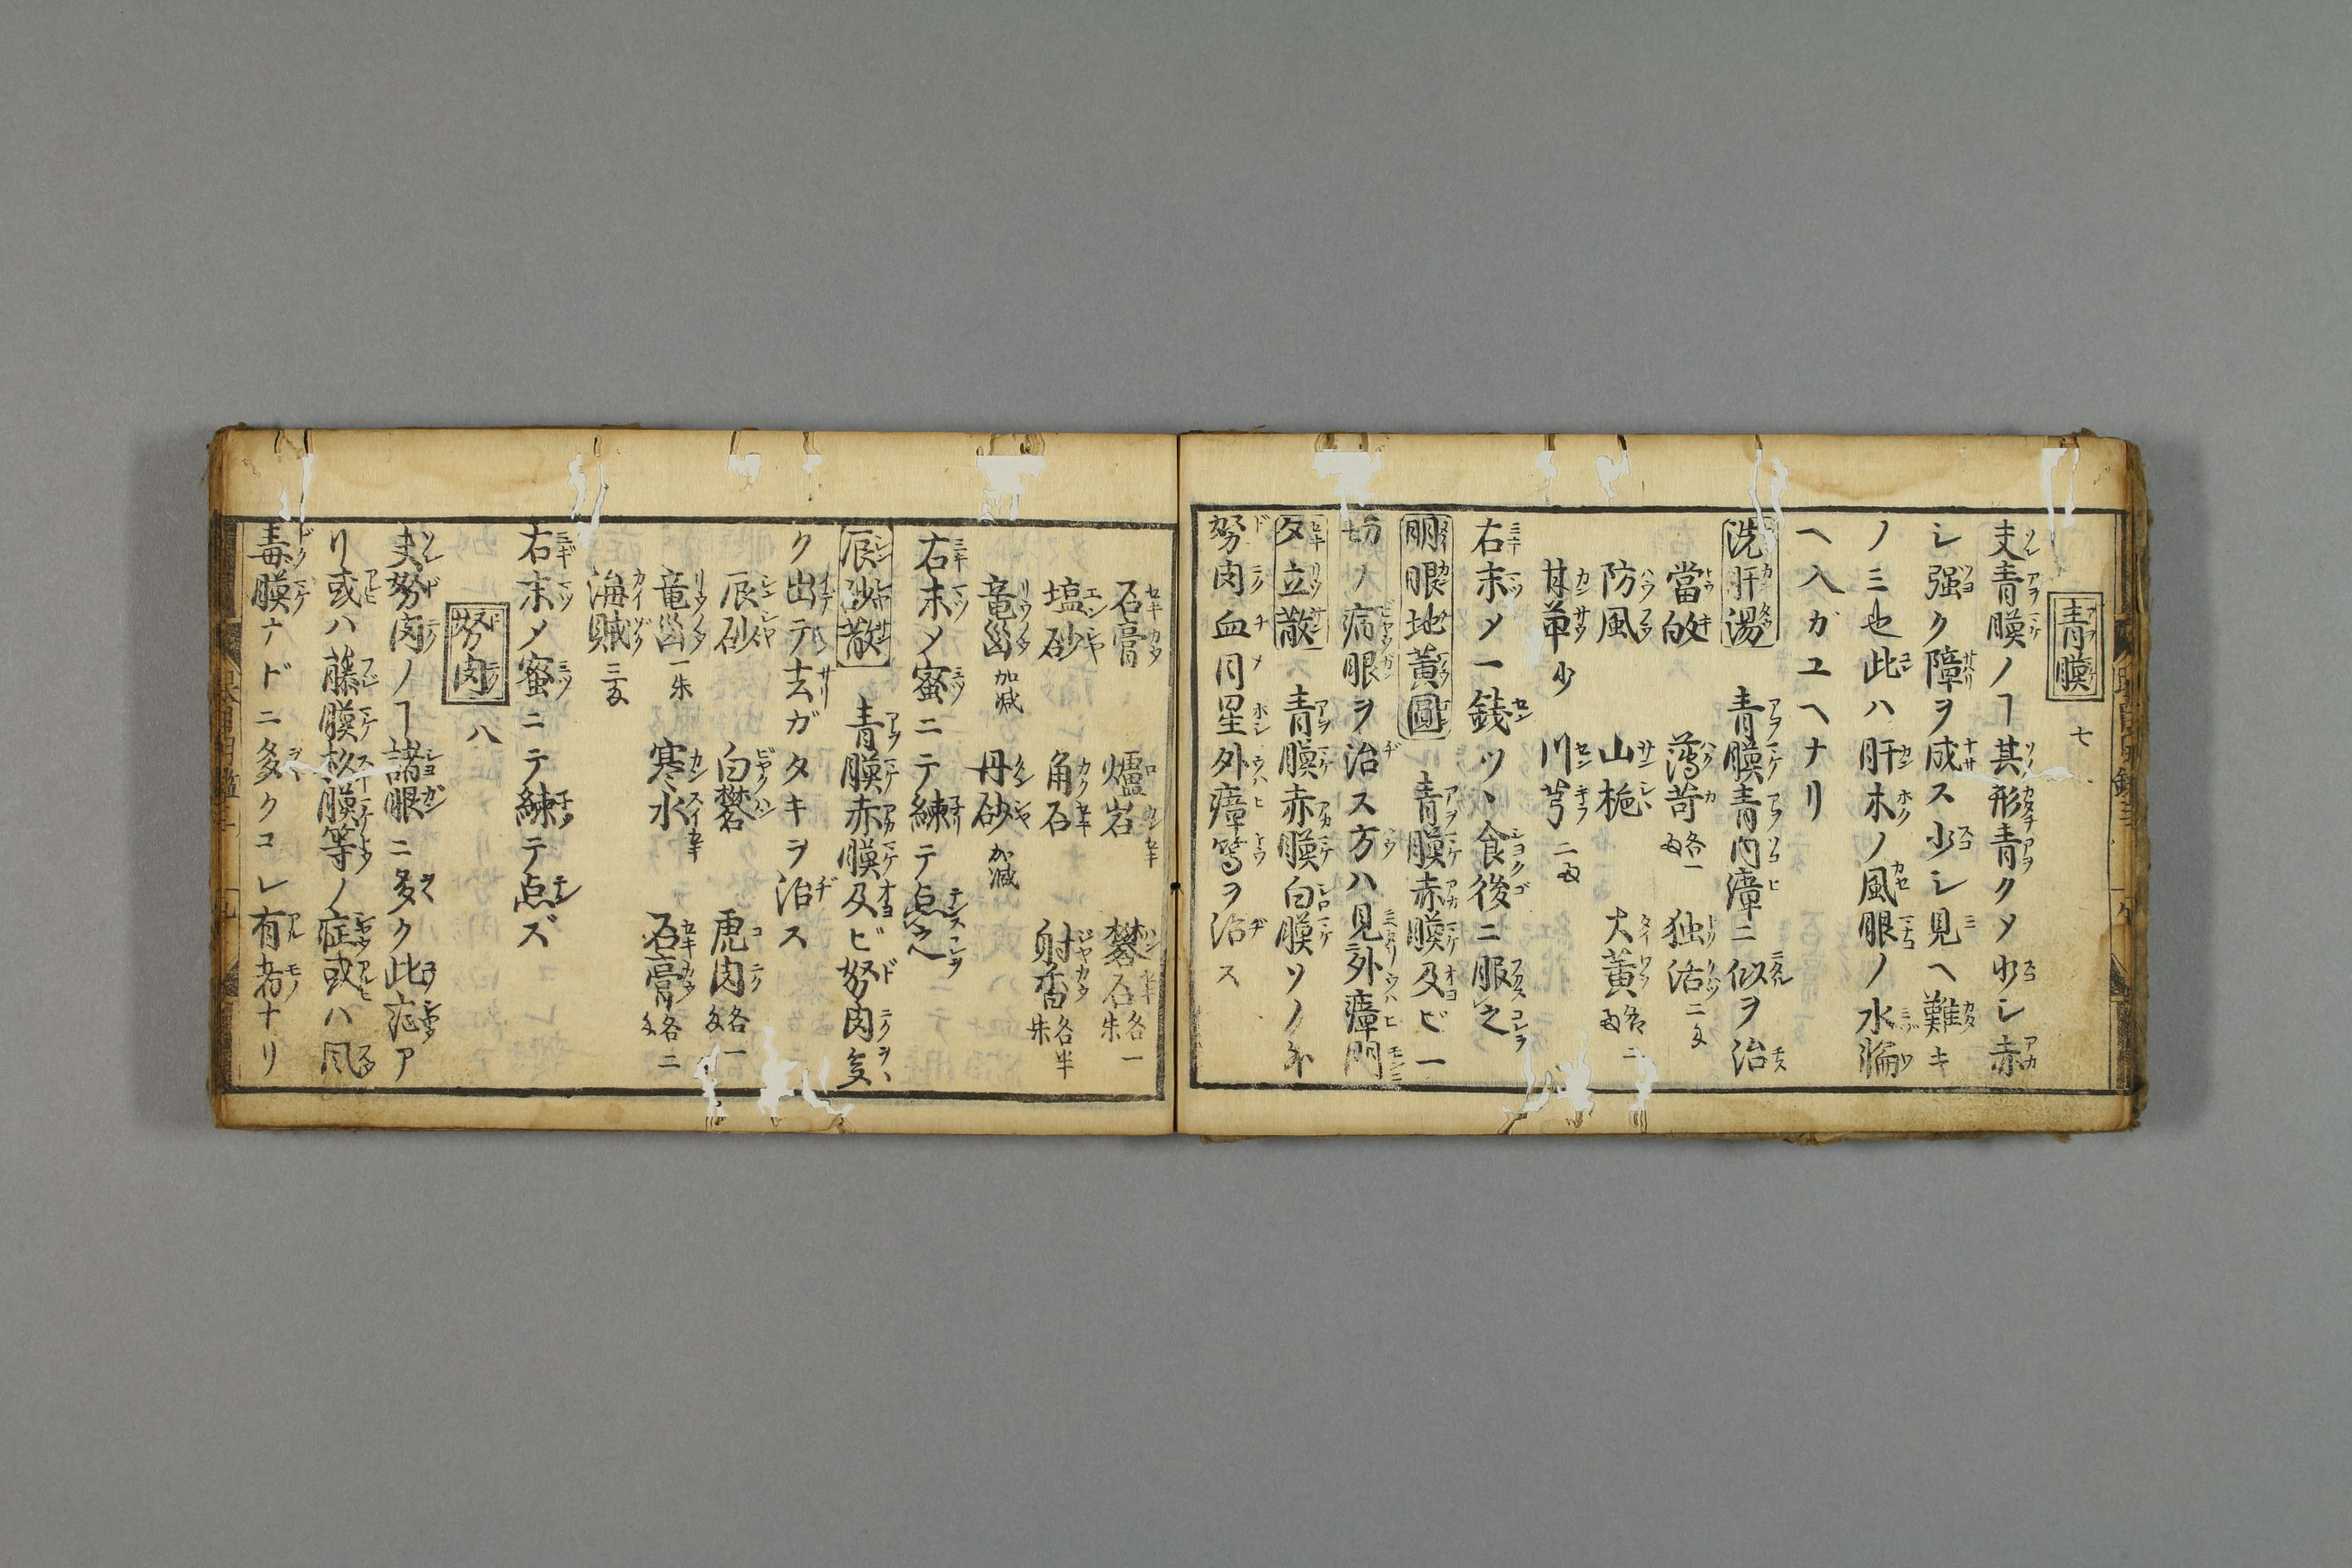 青膜 七
夫青膜ノヿ其形青クメ少シ赤
シ强ク障ヲ成ス少シ見ヘ難キ
ノミ也此ハ肝木ノ風眼ノ水輪
ヘ入ガユヘナリ
洗肝湯 青膜青内瘴ニ似ヲ治
當皈 薄苛各一 独活二匁
防風 山梔 大黄各二
甘草少 川芎二匁
右末メ一銭ツヽ食後ニ服之
明眼地黄圓 青膜赤膜及ビ一
切ノ病眼ヲ治ス方ハ見外瘴門
夕立散 青膜赤膜白膜ソノ外
努肉血目星外瘴等ヲ治ス
石膏 爐岩 礬石各一朱
塩砂 角石 射香各半朱
竜脳加减 丹砂加减
右末メ蜜ニテ練テ点之
辰砂散 青膜赤膜及ビ努肉亥
ク出テ去ガタキヲ治ス
辰砂 白礬 虎肉各一匁
竜脳一朱 寒水 石膏各二匁
海賊三匁
右末メ蜜ニテ練テ点ズ
努肉 八
夫努肉ノヿ諸眼ニ多ク此症ア
リ或ハ藤膜杉膜等ノ症或ハ风
毒膜ナドニ多クコレ有者ナリ